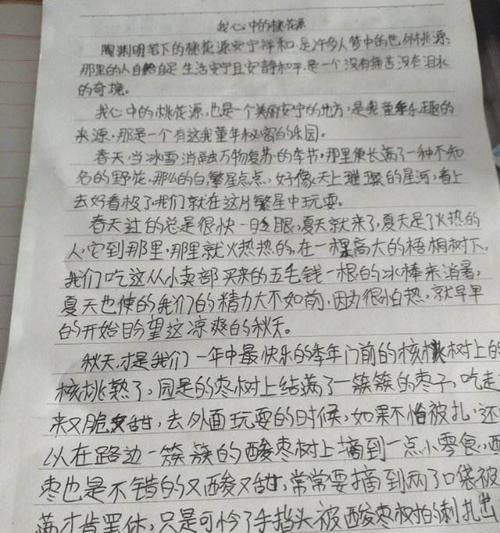 我心中的桃花源
陶渊明笔下的桃花源安宁祥和,是许多人梦中的世外桃源;
那里的人自给自足生活安宁且安静和平,是一个没有痛苦没有泪水
的奇境。
我心中的桃花源,也是一个美丽安宁的地方,是我童年乐趣的
来源,那是一个有这我童年秘密的乐园。
春天,当冰雪消融万物复苏的季节,那里便长满了一种不知
名的野花,那的白,繁星点点,好像天上璀璨的星河,看上
去好看极了,我们就在这片繁星中玩耍。
春天过的总是很快一眨眼,夏天就来了,夏天是了火热的
人,它到那里,那里就火热热的,在一棵高大的梧桐树下,
我们吃这从小卖部买来的五毛钱一根的冰棒来消暑,
夏天也使的我们的精力大不如前,因为很怕热,就早早
的开始盼望这凉爽的秋天。
秋天,才是我们一年中最快乐的季年门前的核桃树上的
核桃熟了,园是的枣树上结满了一簇簇的枣子,吃走
来又脆又甜,去外面玩耍的时候,如果不怕被扎,还
以在路边一簇簇的酸枣树上摘到一点小零食,酉
枣也是不错的又酸又甜,常常要摘到两了口袋被
满才肯罢休,只是可怜了手指头被酸枣树的刺扎出